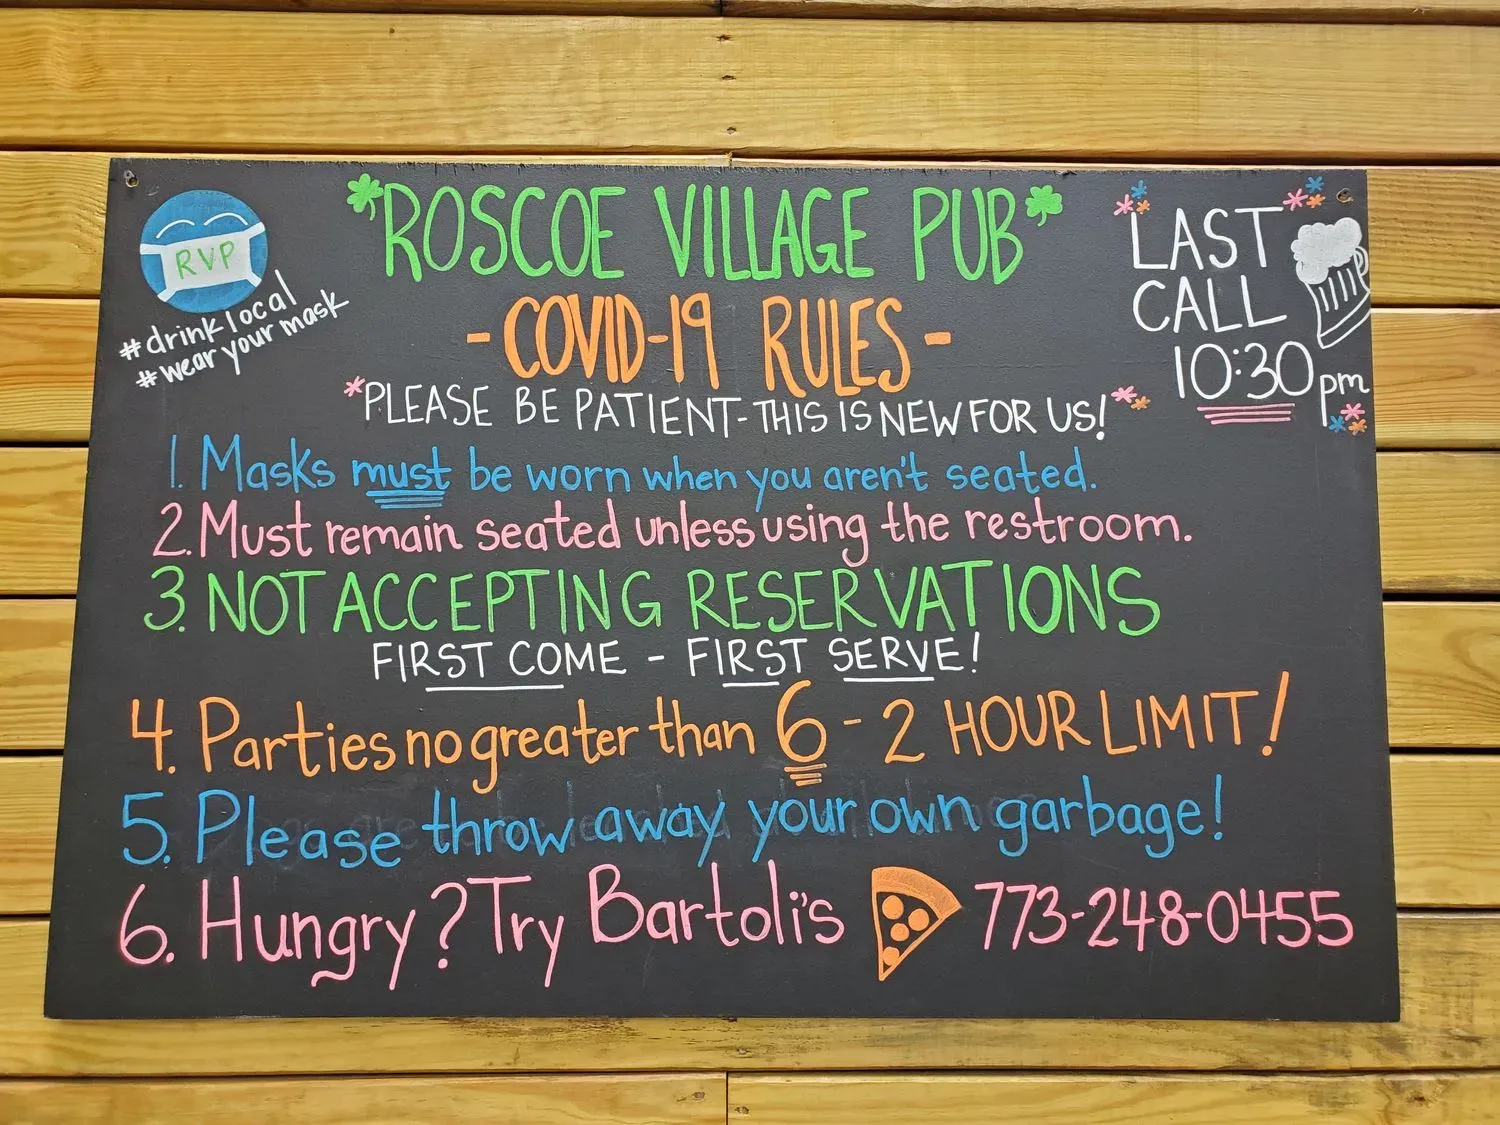 RVP
#drinklocal
#wear your mask
ROSCOE VILLAGE PUB
-COVID-19 RULES-
*PLEASE BE PATIENT-THIS IS NEW FOR US!*
LAST
CALL
10:30pm
1. Masks must be worn when you aren't seated.
2. Must remain seated unless using the restroom.
3. NOT ACCEPTING RESERVATIONS
FIRST COME - FIRST SERVE!
4. Parties no greater than 6 - 2 HOUR LIMIT!
5. Please throw away your own garbage!
6. Hungry? Try Bartoli's 773-248-0455